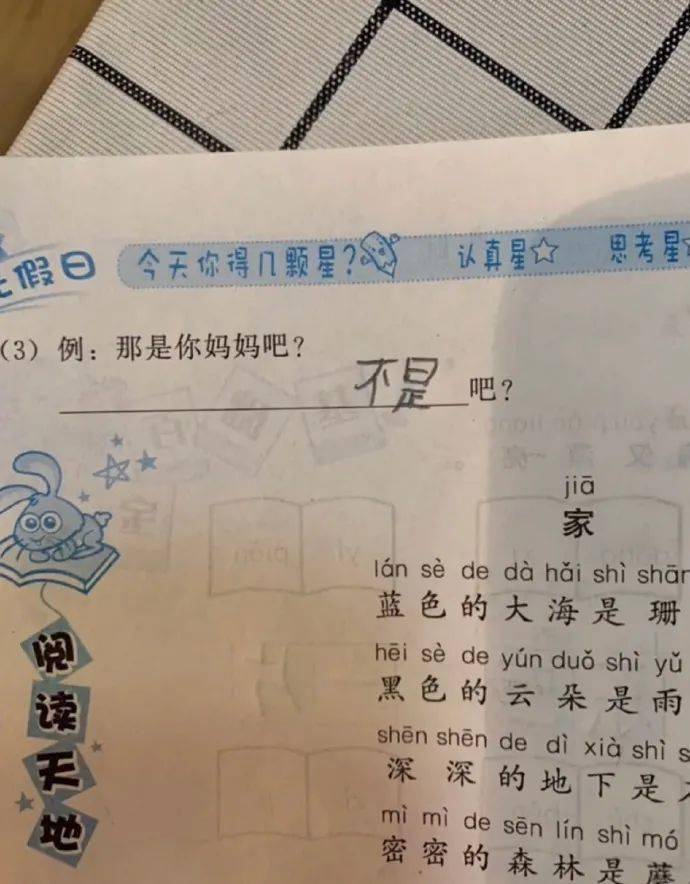 假日 今天你得几颗星? 认真星 思考星
(3) 例：那是你妈妈吧?
不是吧?
jiā
家
lán sè de dà hǎi shì shān
蓝色的大海是珊
hēi sè de yún duǒ shì yǔ
黑色的云朵是雨
shēn shēn de dì xià shì
深深的地下是
mì mì de sēn lín shì mó
密密的森林是蘑
阅读天地